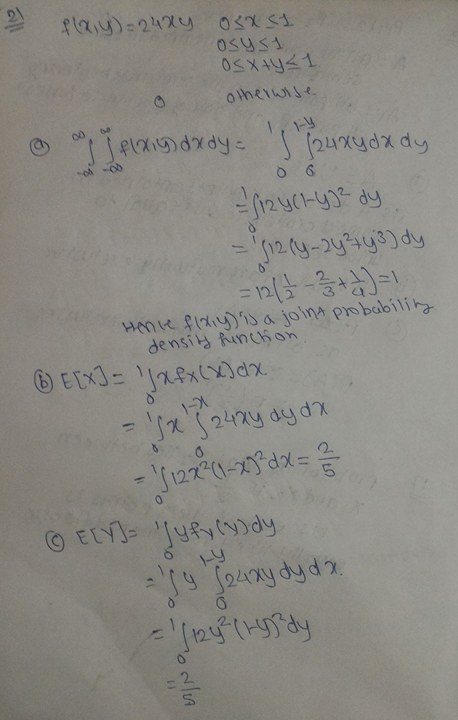 21
f(x,y)=24xy 0≤x≤1
0≤y≤1
0≤x+y≤1
0 otherwise
(a) ∫_{-∞}^{∞} ∫_{-∞}^{∞} f(x,y)dxdy = ∫_0^1 ∫_0^{1-y} 24xy dx dy
= ∫_0^1 12y(1-y)² dy
= ∫_0^1 12(y-2y²+y³) dy
= 12(1/2 - 2/3 + 1/4) = 1
Hence f(x,y) is a joint probability
density function.
(b) E[X] = ∫_0^1 x f_X(x) dx
= ∫_0^1 x ∫_0^{1-x} 24xy dy dx
= ∫_0^1 12x²(1-x)² dx = 2/5
(c) E[Y] = ∫_0^1 y f_Y(y) dy
= ∫_0^1 y ∫_0^{1-y} 24xy dy dx.
= ∫_0^1 12y²(1-y)² dy
= 2/5